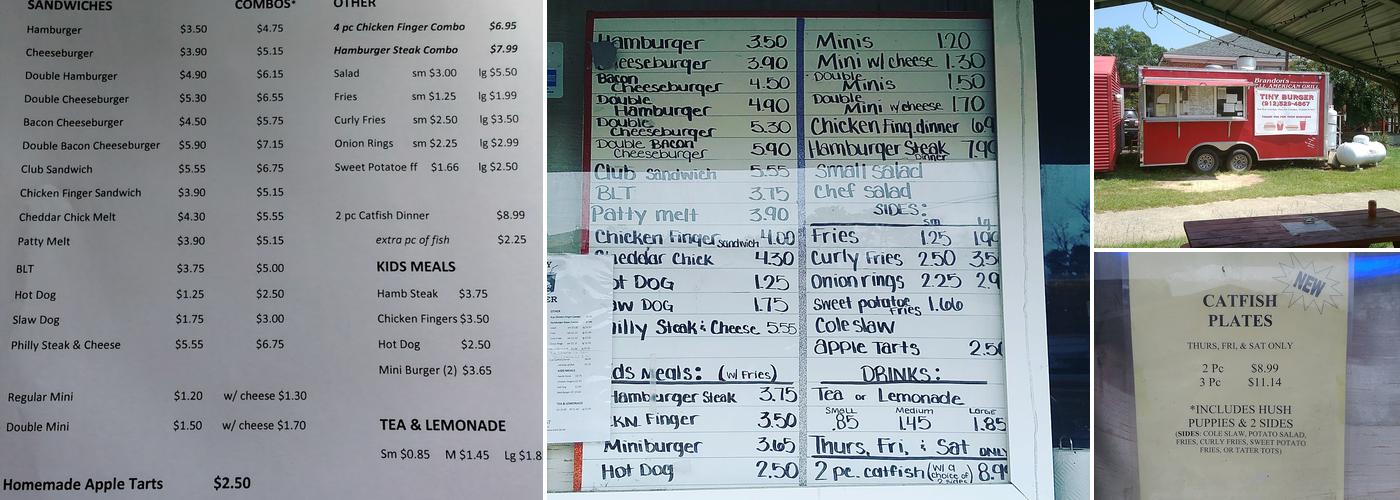 SANDWICHES COMBOS* OTHER
Hamburger $3.50 $4.75
Cheeseburger $3.90 $5.15
Double Hamburger $4.90 $6.15
Double Cheeseburger $5.30 $6.55
Bacon Cheeseburger $4.50 $5.75
Double Bacon Cheeseburger $5.90 $7.15
Club Sandwich $5.55 $6.75
Chicken Finger Sandwich $3.90 $5.15
Cheddar Chick Melt $4.30 $5.55
Patty Melt $3.90 $5.15
BLT $3.75 $5.00
Hot Dog $1.25 $2.50
Slaw Dog $1.75 $3.00
Philly Steak & Cheese $5.55 $6.75
Regular Mini $1.20 w/ cheese $1.30
Double Mini $1.50 w/ cheese $1.70
Homemade Apple Tarts $2.50
4 pc Chicken Finger Combo $6.95
Hamburger Steak Combo $7.99
Salad sm $3.00 lg $5.50
Fries sm $1.25 lg $1.99
Curly Fries sm $2.50 lg $3.50
Onion Rings sm $2.25 lg $2.99
Sweet Potatoe ff $1.66 lg $2.50
2 pc Catfish Dinner $8.99
extra pc of fish $2.25
KIDS MEALS
Hamb Steak $3.75
Chicken Fingers $3.50
Hot Dog $2.50
Mini Burger (2) $3.65
TEA & LEMONADE
Sm $0.85 M $1.45 Lg $1.8
Hamburger 3.50
Cheeseburger 3.90
Bacon Cheeseburger 4.50
Double Hamburger 4.90
Double Cheeseburger 5.30
Double Bacon Cheeseburger 5.90
Club Sandwich 5.55
BLT 3.75
Patty melt 3.90
Chicken Finger Sandwich 4.00
Cheddar Chick 4.30
ot DOG 1.25
aw DOG 1.75
hilly Steak & Cheese 5.55
ds Meals: (w/ Fries)
Hamburger Steak 3.75
CKN. Finger 3.50
Miniburger 3.65
Hot Dog 2.50
Minis 1.20
Mini w/ cheese 1.30
Double Minis 1.50
Double Mini w/ cheese 1.70
Chicken Fing. dinner 6.9
Hamburger Steak Dinner 7.99
Small salad
Chef salad
SIDES: sm lg
Fries 1.25 1.99
Curly Fries 2.50 3.5
Onion rings 2.25 2.9
Sweet potatoe Fries 1.66
Cole slaw
Apple Tarts 2.50
DRINKS:
Tea or Lemonade
Small Medium Large
.85 1.45 1.85
Thurs, Fri, & Sat ONLY
2 pc. catfish (w/ a choice of 2 sides) 8.99
Brandon's
ALL AMERICAN GRILL
TINY BURGER
(912)529-4867
NEW
CATFISH
PLATES
THURS, FRI, & SAT ONLY
2 Pc $8.99
3 Pc $11.14
*INCLUDES HUSH
PUPPIES & 2 SIDES
(SIDES: COLE SLAW, POTATO SALAD,
FRIES, CURLY FRIES, SWEET POTATO
FRIES, OR TATER TOTS)